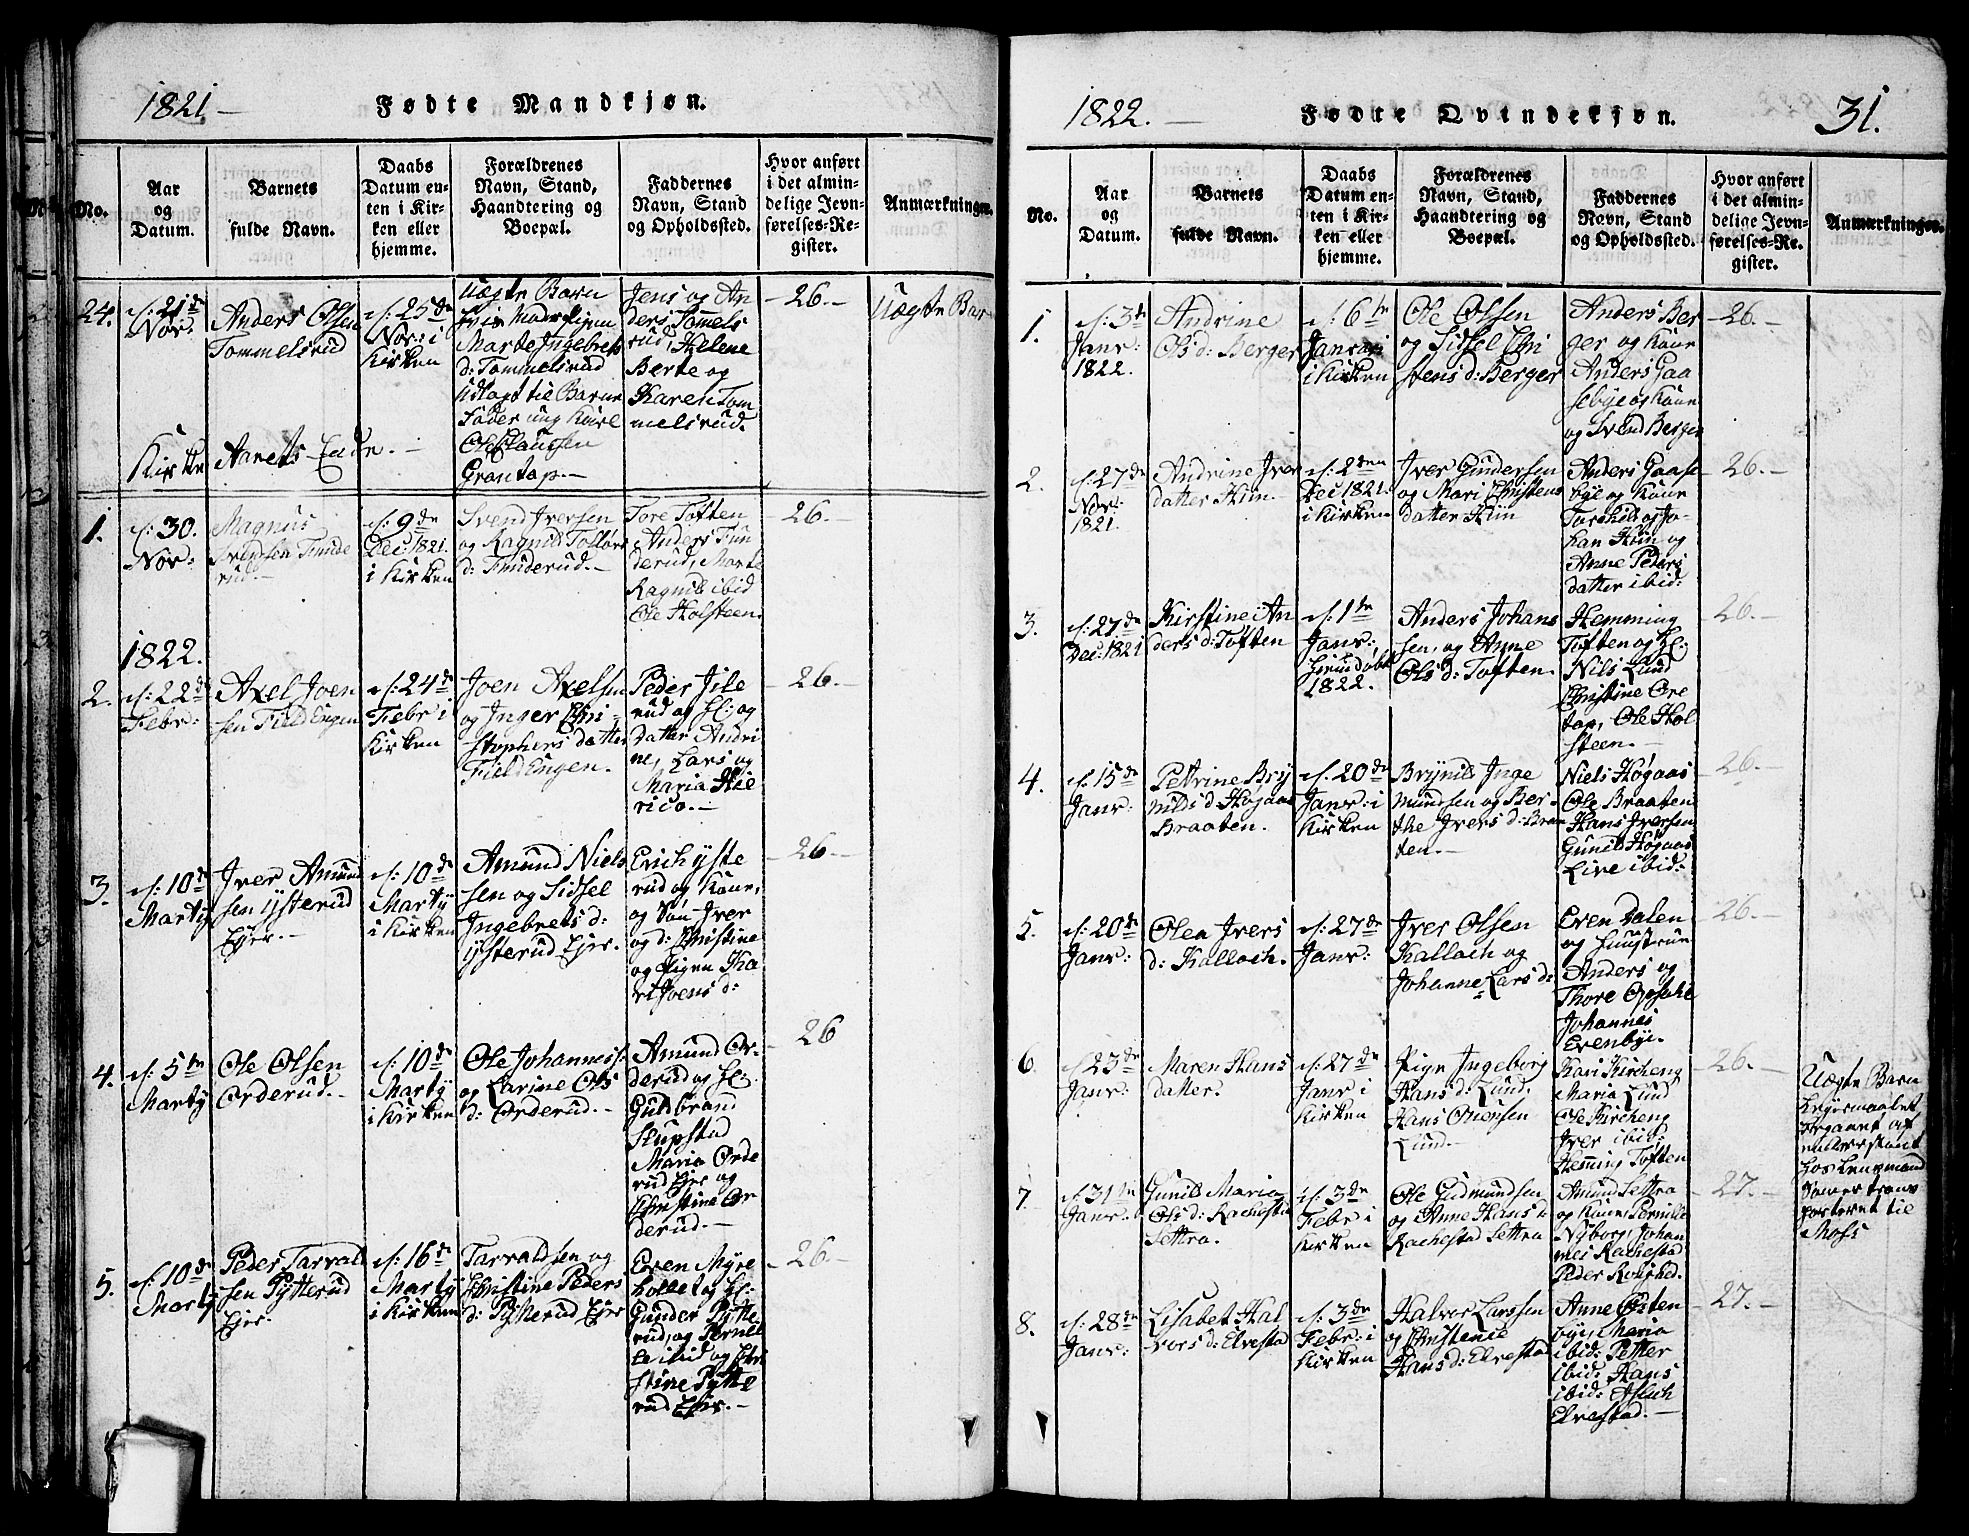 1821 –
Fødte Mandkjøn.
No.
Aar
og
Datum.
Barnets
fulde Navn.
Daabs
Datum en-
ten i Kir-
ken eller
hjemme.
Forældrenes
Navn, Stand,
Haandtering og
Boepæl.
Faddernes
Navn, Stand
og Opholdssted.
Hvor anført
i det almin-
delige Jevn-
førelses-Re-
gister.
Anmærkninger.
24.
d: 21de
Nov:
Anders Olsen
Tommelsrud
d: 25de
Nov: i
Kirken
Uægte Barn
Marte Ingebrets
d: Tommelsrud
Udlagt til Barne
Fader ung Karl
Ole Claussen
Grantop.–
Jens og An
ders Tomels
rud, Helene
Berte og
Karen Tom
melsrud.
– 26. –
Uægte Barn
Kirke Aarets Ende. –
1.
d: 30.
Nov:
Magnus
Svendsen Funde
rud. –
d: 9de
Dec: 1821.
i Kirken
Svend Iversen
og Ragnil Tollevs
d: Funderud. –
Tore Toften
Anders Fun
derud, Marte
Ragnil ibid
Ole Holsteen.
– 26. –
1822.
2.
d: 22de
Febr:
Axel Joen
sen Field Engen
d: 24de
Febr i
Kirken
Joen Axelsen
og Inger Chri–
stophers datter
Field Engen.
Peder Jile
rud og H: og
Datter Andri
ne, Lars og
Maria Hie
rico. –
– 26. –
3.
d: 10de
Marty
Iver Amund
sen Ysterud
Ejer. –
d: 10de
Marty
i Kirken
Amund Niels
sen og Sidsel
Ingebrets d:
Ysterud Ejer.
Erich Yste
rud og Kone,
og Søn Iver
og d: Christine
og Pigen Ka
ri Joens d:
– 26. –
4.
d: 5te
Marty
Ole Olsen
Orderud. –
d: 10de
Marty
i Kirken
Ole Johannes:
og Karine Ols
d: Orderud. –
Amund Or-
derud og H:
Guldbrand
Slupstad
Maria Orde
rud Ejer og
Christine Or
derud. –
26
5.
d: 10de
Marty
Peder Tarrald
sen Pytterud
Ejer.
d: 16de
Marty
i Kirken
Tarraldsen og
Christine Peders
d: Pytterud Ejer
Even Myre
hollet og H:
Gunder Pytte
rud, og Pernel
le ibid og Chri
stine Pytte
rud Ejer. –
– 26. –
1822. –
Fødte Qvindekjøn.
31.
No.
Aar
og
Datum.
Barnets
fulde Navn.
Daabs
Datum en-
ten i Kir-
ken eller
hjemme.
Forældrenes
Navn, Stand,
Haandtering og
Boepæl.
Faddernes
Navn, Stand
og Opholdssted.
Hvor anført
i det almin-
delige Jevn-
førelses-Re-
gister.
Anmærkninger.
1.
d: 3de
Janv:
1822.
Andrine
Ols d: Berger
d: 6te
Janvari
i Kirken
Ole Olsen
og Sidsel Chri
stens d: Berger
Anders Ber
ger og Kone
Anders Gaa
sebye og Kone
og Svend Berger
– 26. –
2.
d: 27de
Nov:
1821.
Andrine Iver
datter Hiin.
d: 2den
Dec 1821.
i Kirken
Iver Gundersen
og Mari Christens
datter Hiin
Anders Gaase
bye og Kone
Torchil og Jo-
han Hiin og
Anne Peders
datter ibid:
– 26. –
3.
d: 27de
Dec: 1821
Kirstine An
ders d: Toften
d: 1te
Janv:
1822.
Anders Johans
sen, og Anne
Ols d: Toften.
Hemming
Toften og H:
Nils Lund
Christine Ore
top, Ole Hol
steen. –
– 26. –
4.
d: 15de
Janv:
Petrine Bry
nilds d: Høgaas
Braaten.
d: 20de
Janv: i
Kirken
Brynild Inge
mundsen og Ber-
the Ivers d: Braa
ten. –
Niels Høgaas
Ole Braaten
Hans Iversen
Gunil Høgaas
Live ibid:
– 26. –
5.
d: 20de
Janv:
Olea Ivers
d: Kallach.
d: 27de
Janv:
Iver Olsen
Kallach og
Johanne Lars d:
Even Dalen
og Huustrue
Anders og
Thore Opsahl
Johannes
Evenbye.
– 26. –
6.
d: 23de
Janv:
Maren Hans
datter.
d: 27de
Janv i
Kirken
Pige Ingeborg
Hans d: Lund.
Hans Onensen
Lund. –
Kari Kircheng
Maria Lund
Ole Kircheng
Iver ibid
Heming Toften
– 26. –
Uægte Barn
Leyermaalet
begaaet af
hos Lensmand
transpor-
porteret til
Moss
7.
d: 31te
Janv:
Gunild Maria
Ols d: Rachestad
Settra.
d: 3de
Febr i
Kirken
Ole Gudmundsen
og Anne Hans d:
Rachestad Settra
Amund Settra
og Kone, Pernille
Nyborg, Johan
nes Rachestad
Peder Rolighed.
– 27. –
8.
d: 28de
Janv:
Lisabet Hal
vors d: Elvestad
d: 3de
Febr: i
Kirken
Halvor Larssen
og Christenie
Hans d: Elvestad
Anne Østen
bye, Maria
ibid: Petter
ibid: Hans
ibid: Aslach
Elvestad. –
– 27. –